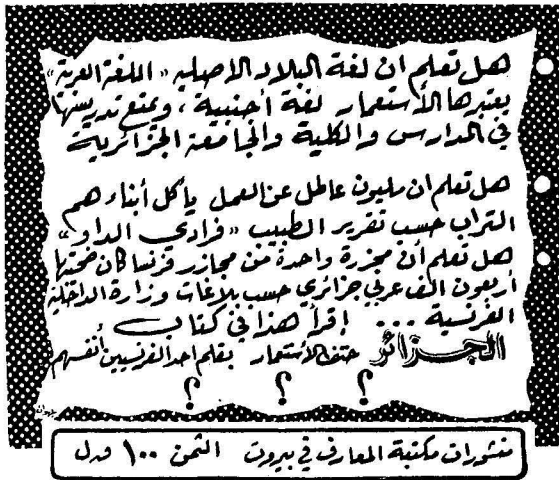 هل تعلم ان لغة البلاد الاصلية "اللغة العربية"
يعتبرها الأستعمار لغة أجنبية ، ويمنع تدريسها
في المدارس والكلية والجامعة الجزائرية
هل تعلم ان مليون عاطل عن العمل يأكل أبناءهم
التراب حسب تقرير الطبيب "فرادي الداو"
هل تعلم أن مجزرة واحدة من مجازر فرنسا كان ضحيتها
أربعون الف عربي جزائري حسب بلاغات وزارة الداخلية
الفرنسية ... إقرأ هذا في كتاب
الجزائر حتف الأستعمار بقلم احد الفرنسيين أنفسهم
؟ ؟ ؟
منشورات مكتبة المعارف في بيروت الثمن ١٠٠ ق.ل